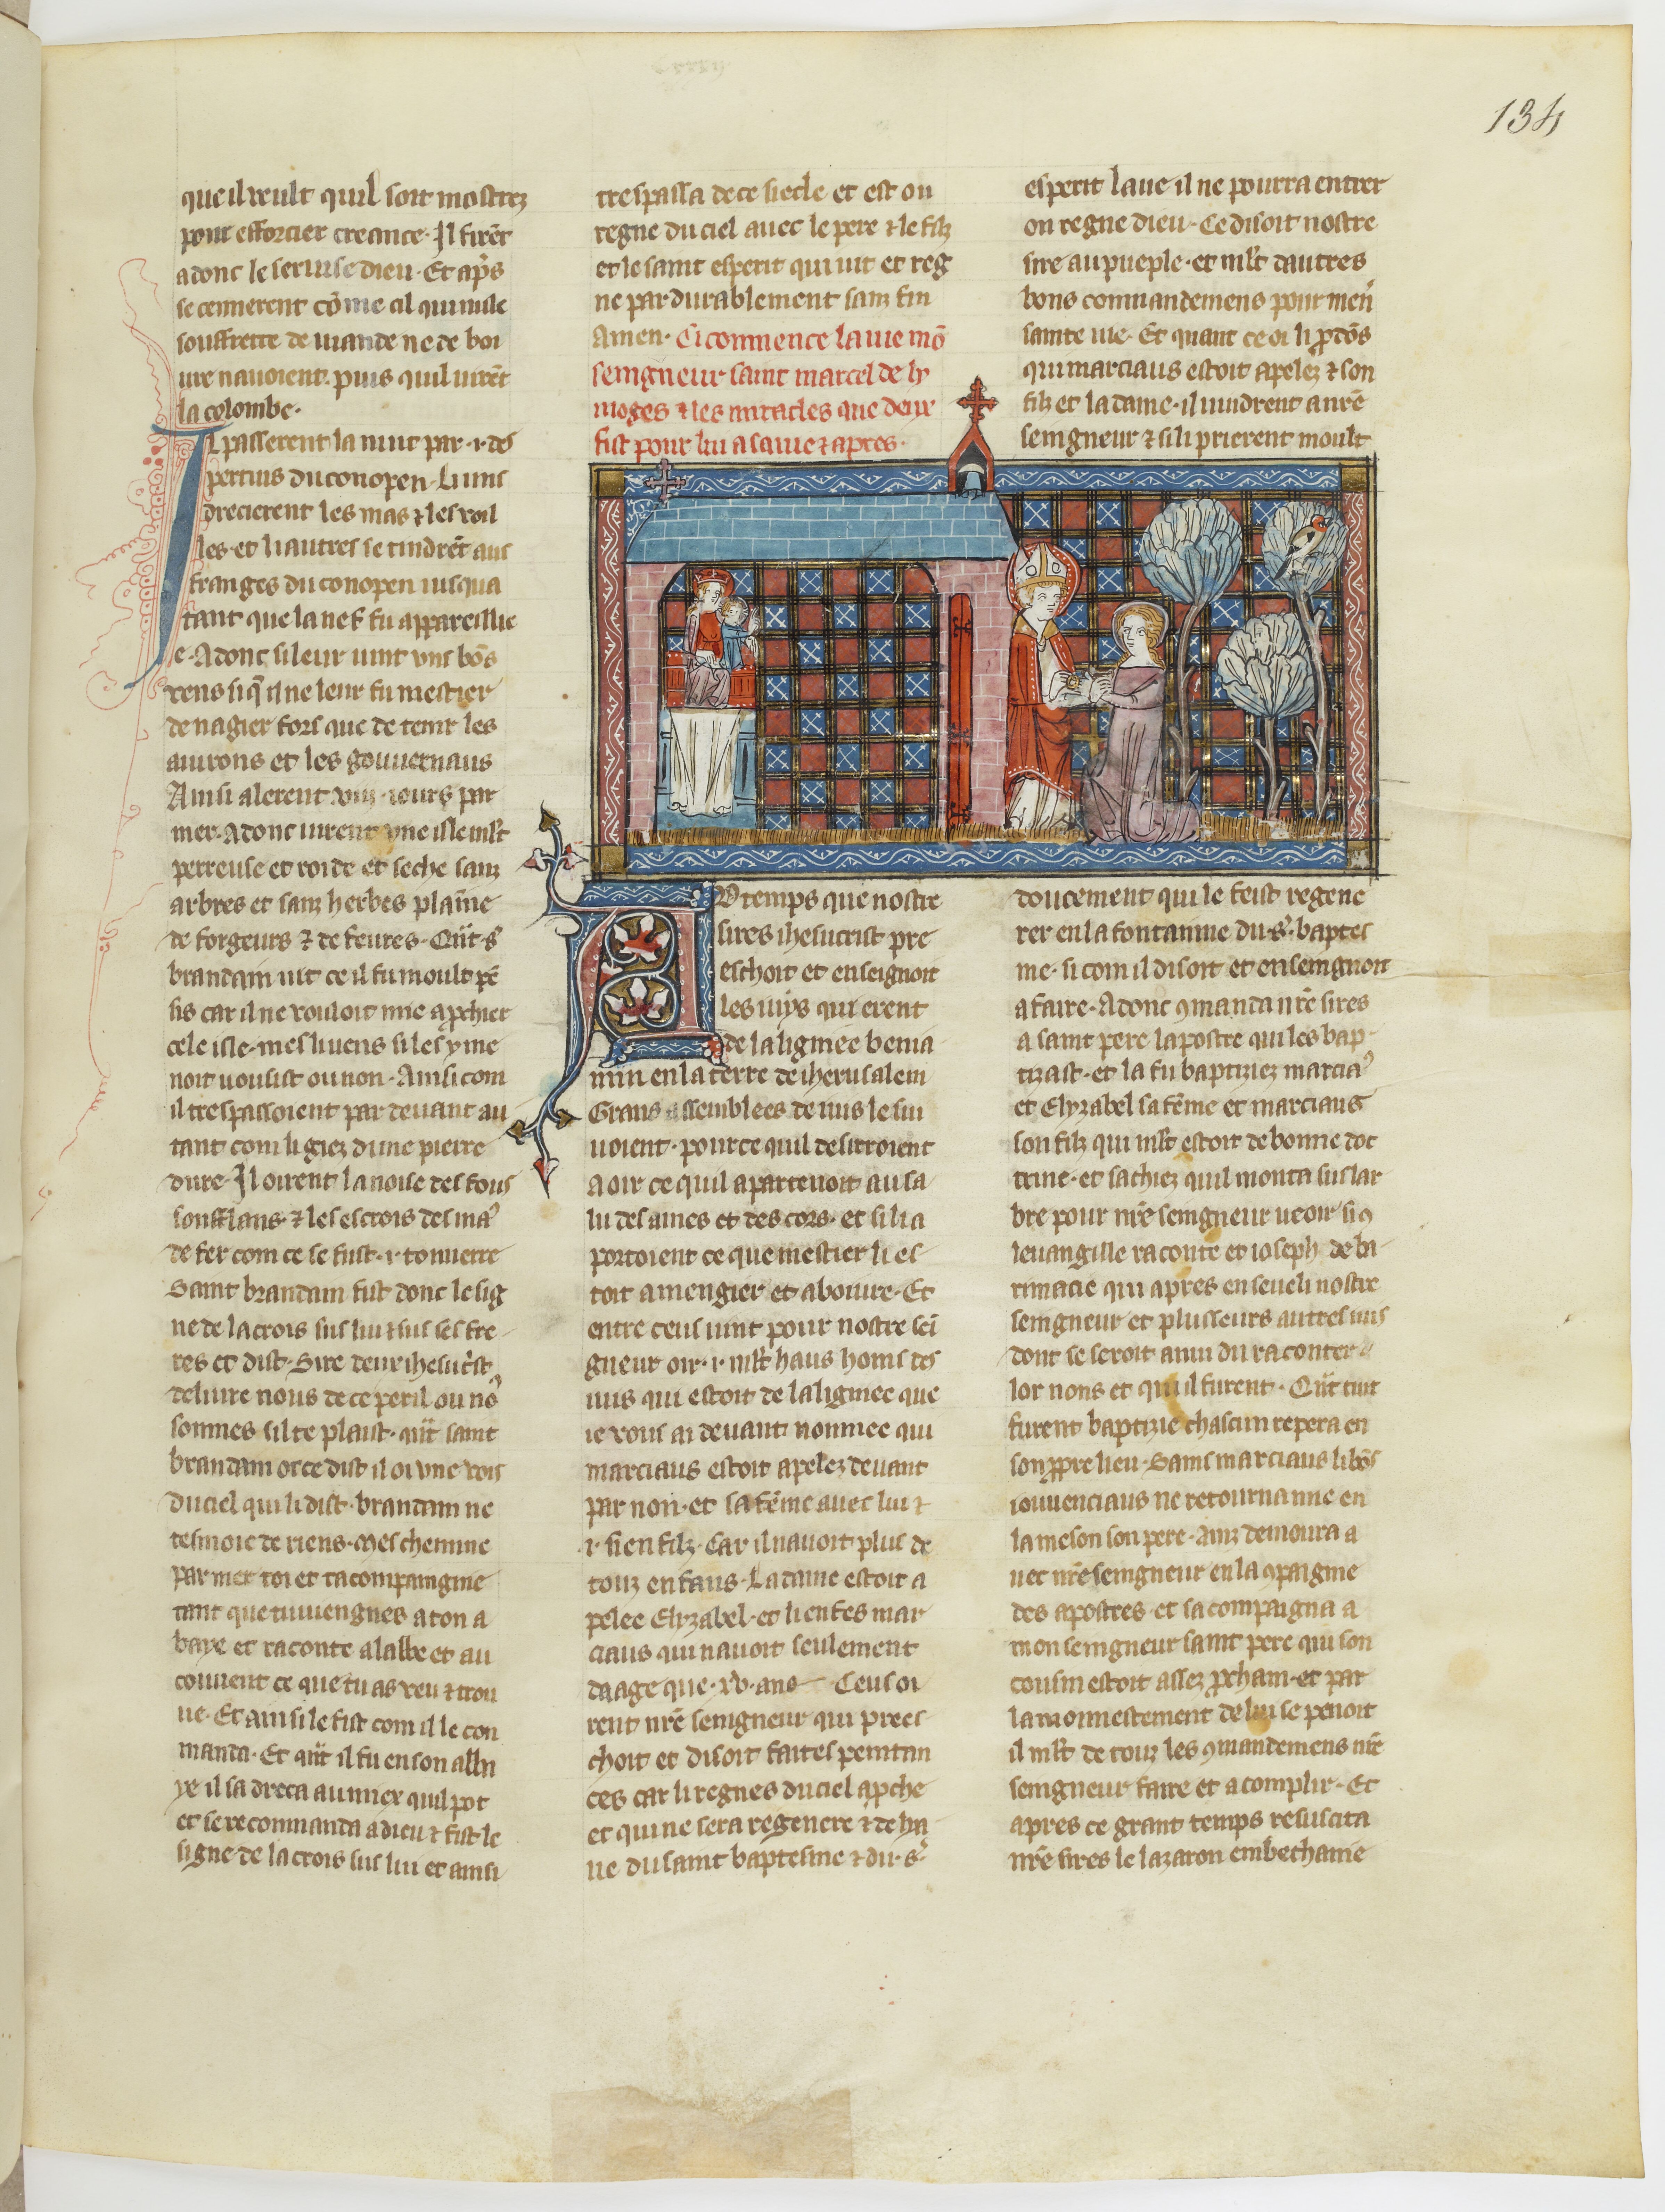 134
que il veult quil soit mostrez
pour efforcier creance. Il firẽt
adonc le seruise dieu. Et ap̃s
se cennerent cõme cil qui nule
souffrete de uiande ne de boi
ure nauoient. puis quil uirẽt
la colombe.
Il passerent la nuit par .i. des
pertuis du conopeu. Li uns
drecierent les mas ⁊ les voil
les. et li autres se tindrẽt aus
franges du conopeu iusqua
tant que la nef fu appareillie
e. Adonc si leur uint vns bõs
vens si q̃ il ne leur fu mestier
de nagier fors que de tenir les
auirons et les gouuernaus
Ainsi alerent .viij. iours par
mer. Adonc uirent vne isle ml̃t
perreuse et roide et seche sanz
arbres et sanz herbes plaine
de forgeurs ⁊ de feures. Qũt .s̃.
brandain uit ce il fu moult pẽ
sis car il ne vouloit mie ap̃chier
cele isle. mes li uens si les y me
noit uousist ou non. Ainsi com
il trespassoient par deuant au
tant com li giez dune pierre
dure. Il oirent la noise des fous
soufflans. ⁊ les escrois des maꝰ
de fer com ce se fust .i. tonuerre
Saint brandain fist donc le sig
ne de la crois sus lui ⁊ sus ses fre
res et dist. Sire dieux ihesucrist
deliure nous de ce peril ou noꝰ
sommes sil te plaist. qũt saint
brandain ot ce dist il oi vne vois
du ciel qui li dist. brandain ne
tesmoie de riens. Mes chemine
par mer toi et ta compaingnie
tant que tu uiengnes a ton a
baye et raconte a labbe et au
couuent ce que tu as veu ⁊ trou
ue. Et ainsi le fist com il le con
manda. Et qũt il fu en son abba
ye il sa dreca au miex quil pot
et se recommanda a dieu ⁊ fist le
signe de la crois sus lui et ainsi
trespassa de ce siecle et est ou
regne du ciel auec le pere ⁊ le filz
et le saint esperit qui uit et reg
ne pardurablement sanz fin
Amen. Ci commence la uie mõ
seingneur saint marcel de ly
moges ⁊ les miracles que diex
fist pour lui a sa uie ⁊ apres.
Ou temps que nostre
sires ihesucrist pre
eschoit et enseignoit
les iuys qui erent
de la lignee benia
min en la terre de iherusalem
Grans assemblees de iuis le sui
uoient. pour ce quil desirroient
a oir ce quil apartenoit au sa
lu des ames et des cors. et si li a
portoient ce que mestier li es
toit a mengier et a boiure. Et
entre ceus uint pour nostre sei
gneur oir .i. ml̃t haus homs des
iuis qui estoit de la lignee que
ie vous ai deuant nommee qui
marciaus estoit apelez deuant
par non. et sa fẽme auec lui ⁊
.i. sien filz. Car il nauoit plus de
touz enfans. La dame estoit a
pelee Elyzabel. et li enfes mar
ciaus qui nauoit seulement
daage que .xv. ans. Ceus oi
rent nr̃e seingneur qui prees
choit et disoit faites penitan
ces car li regnes du ciel ap̃che
et qui ne sera regenere ⁊ de lya
ue du saint baptesme ⁊ du .s̃.
esperit laue il ne pourra entrer
ou regne dieu. Ce disoit nostre
sire au pueple. et ml̃t dautres
bons commandemens pour men̄
sainte uie. Et quant ce oi li p̃dõs
qui marciaus estoit apelez ⁊ son
filz et la dame. il uindrent a nr̃e
seingneur ⁊ si li prierent moult
doucement qui le feist regene
rer en la fontainne du .s̃. baptes
me. si com il disoit et enseingnoit
a faire. Adonc 9manda nr̃e sires
a saint pere lapostre qui les bap
tizast. et la fu baptiziez marciaꝰ
et Elyzabel sa fẽme et marciaus
son filz qui ml̃t estoit de bonne doc
trine. et sachiez quil monta sus lar
bre pour nr̃e seingneur ueoir si 9
leuangille raconte et ioseph de ba
rimacie qui apres enseueli nostre
seingneur et plusseurs autres iuis
dont se seroit anui du raconter
lor nons et qui il furent. Qũt tuit
furent baptizie chascun repera en
son p̃pre lieu. Sains marciaus li bõs
iouuenciaus ne retourna mie en
la meson son pere. ainz demoura a
uec nr̃e seingneur en la 9paignie
des apostres. et sa compaigna a
mon seingneur saint pere qui son
cousin estoit assez p̃chain. et par
lamonnestement de lui se penoit
il ml̃t de touz les 9mandemens nr̃e
seingneur faire et acomplir. Et
apres ce grant temps resuscita
nr̃e sires le lazaron en bethanie